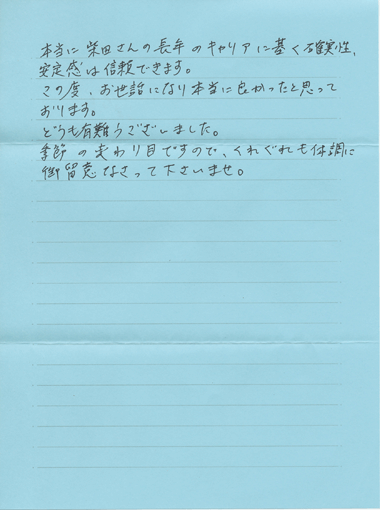 本当に柴田さんの長年のキャリアに基く確実性、
安定感は信頼できます。
この度、お世話になり本当に良かったと思って
おります。
どうも有難うございました。
季節の変わり目ですので、くれぐれも体調に
御留意なさって下さいませ。